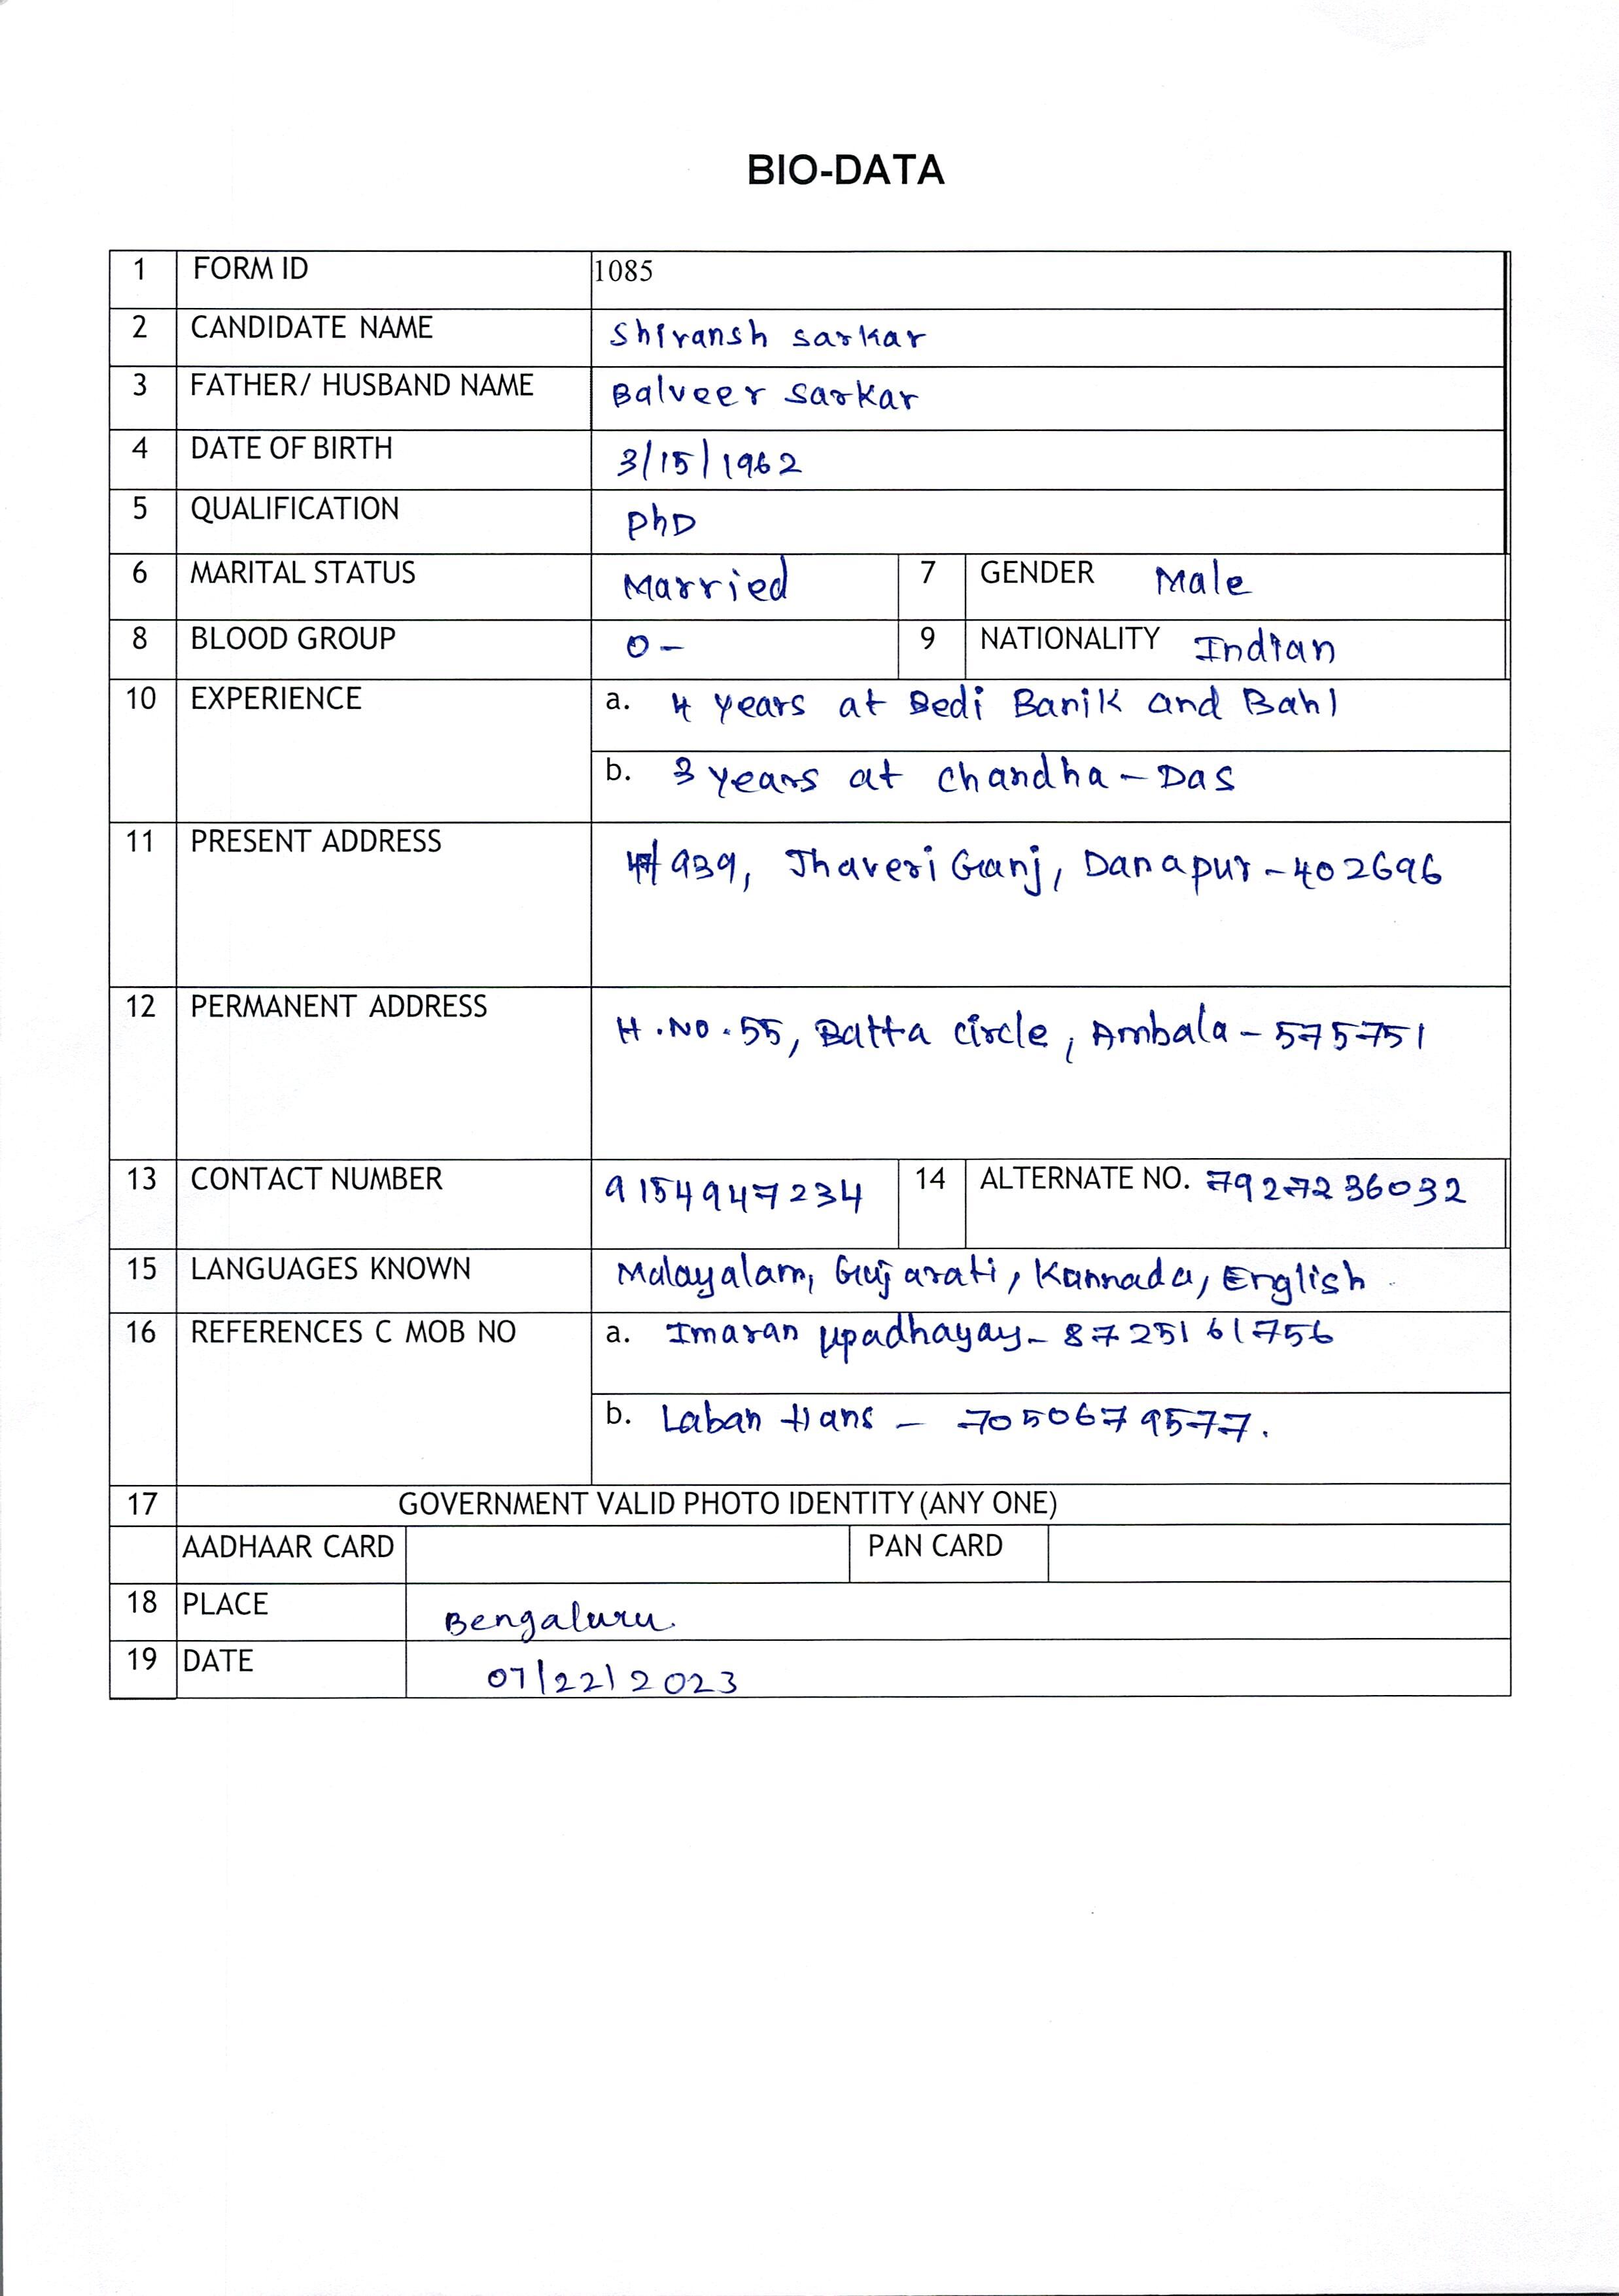 BIO-DATA
1 FORM ID 1085
2 CANDIDATE NAME Shivansh Sarkar
3 FATHER/ HUSBAND NAME Balveer Sarkar
4 DATE OF BIRTH 3/15/1962
5 QUALIFICATION PhD
6 MARITAL STATUS Married 7 GENDER Male
8 BLOOD GROUP O- 9 NATIONALITY Indian
10 EXPERIENCE a. 4 years at Bedi Banik and Bahl
b. 3 years at Chandha-Das
11 PRESENT ADDRESS 939, Jhaveri Ganj, Danapur-402696
12 PERMANENT ADDRESS H.NO.55, Batta Circle, Ambala-575751
13 CONTACT NUMBER 9154947234 14 ALTERNATE NO. 7927236032
15 LANGUAGES KNOWN Malayalam, Gujarati, Kannada, English
16 REFERENCES C MOB NO a. Imaran Upadhayay- 8725161756
b. Laban Hans - 7050679577.
17 GOVERNMENT VALID PHOTO IDENTITY (ANY ONE)
AADHAAR CARD PAN CARD
18 PLACE Bengaluru
19 DATE 07/22/2023